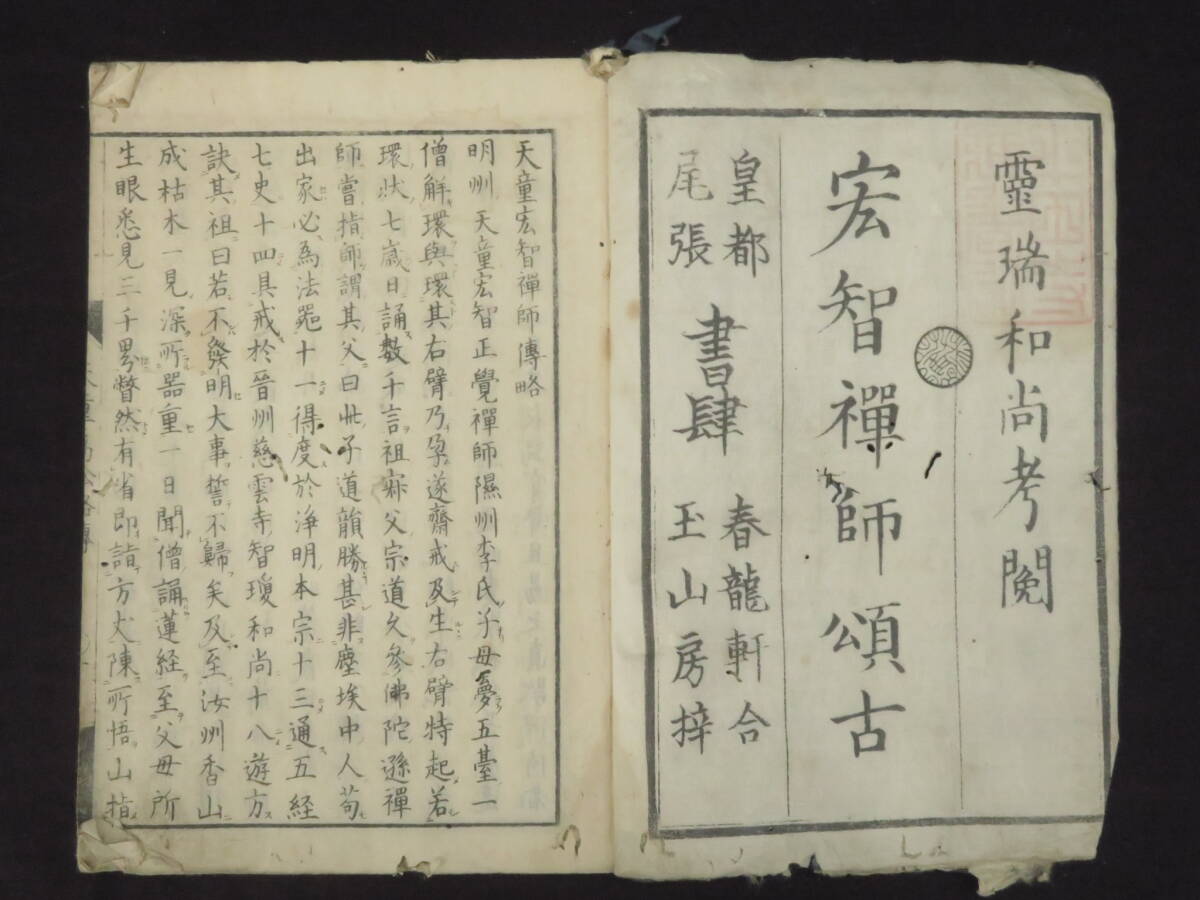 靈瑞和尚考閱
宏智禪師頌古
皇都 書肆 春龍軒合
尾張 玉山房梓
天童宏智禪師傳略
明州天童宏智正覺禪師隰州李氏子母夢五臺一
僧解環與環其右臂乃孕遂齋戒及生右臂特起若
環狀七歲日誦數千言祖寂父宗道久參佛陀遜禪
師嘗指師謂其父曰此子道韻勝甚非塵埃中人苟
出家必為法器十一得度於淨明本宗十三通五經
七史十四具戒於晉州慈雲寺智瓊和尚十八遊方
訣其祖曰若不發明大事誓不歸矣及至汝州香山
成枯木一見深所器重一日聞僧誦蓮経至父母所
生眼悉見三千界瞥然有省即詣方丈陳所悟山指